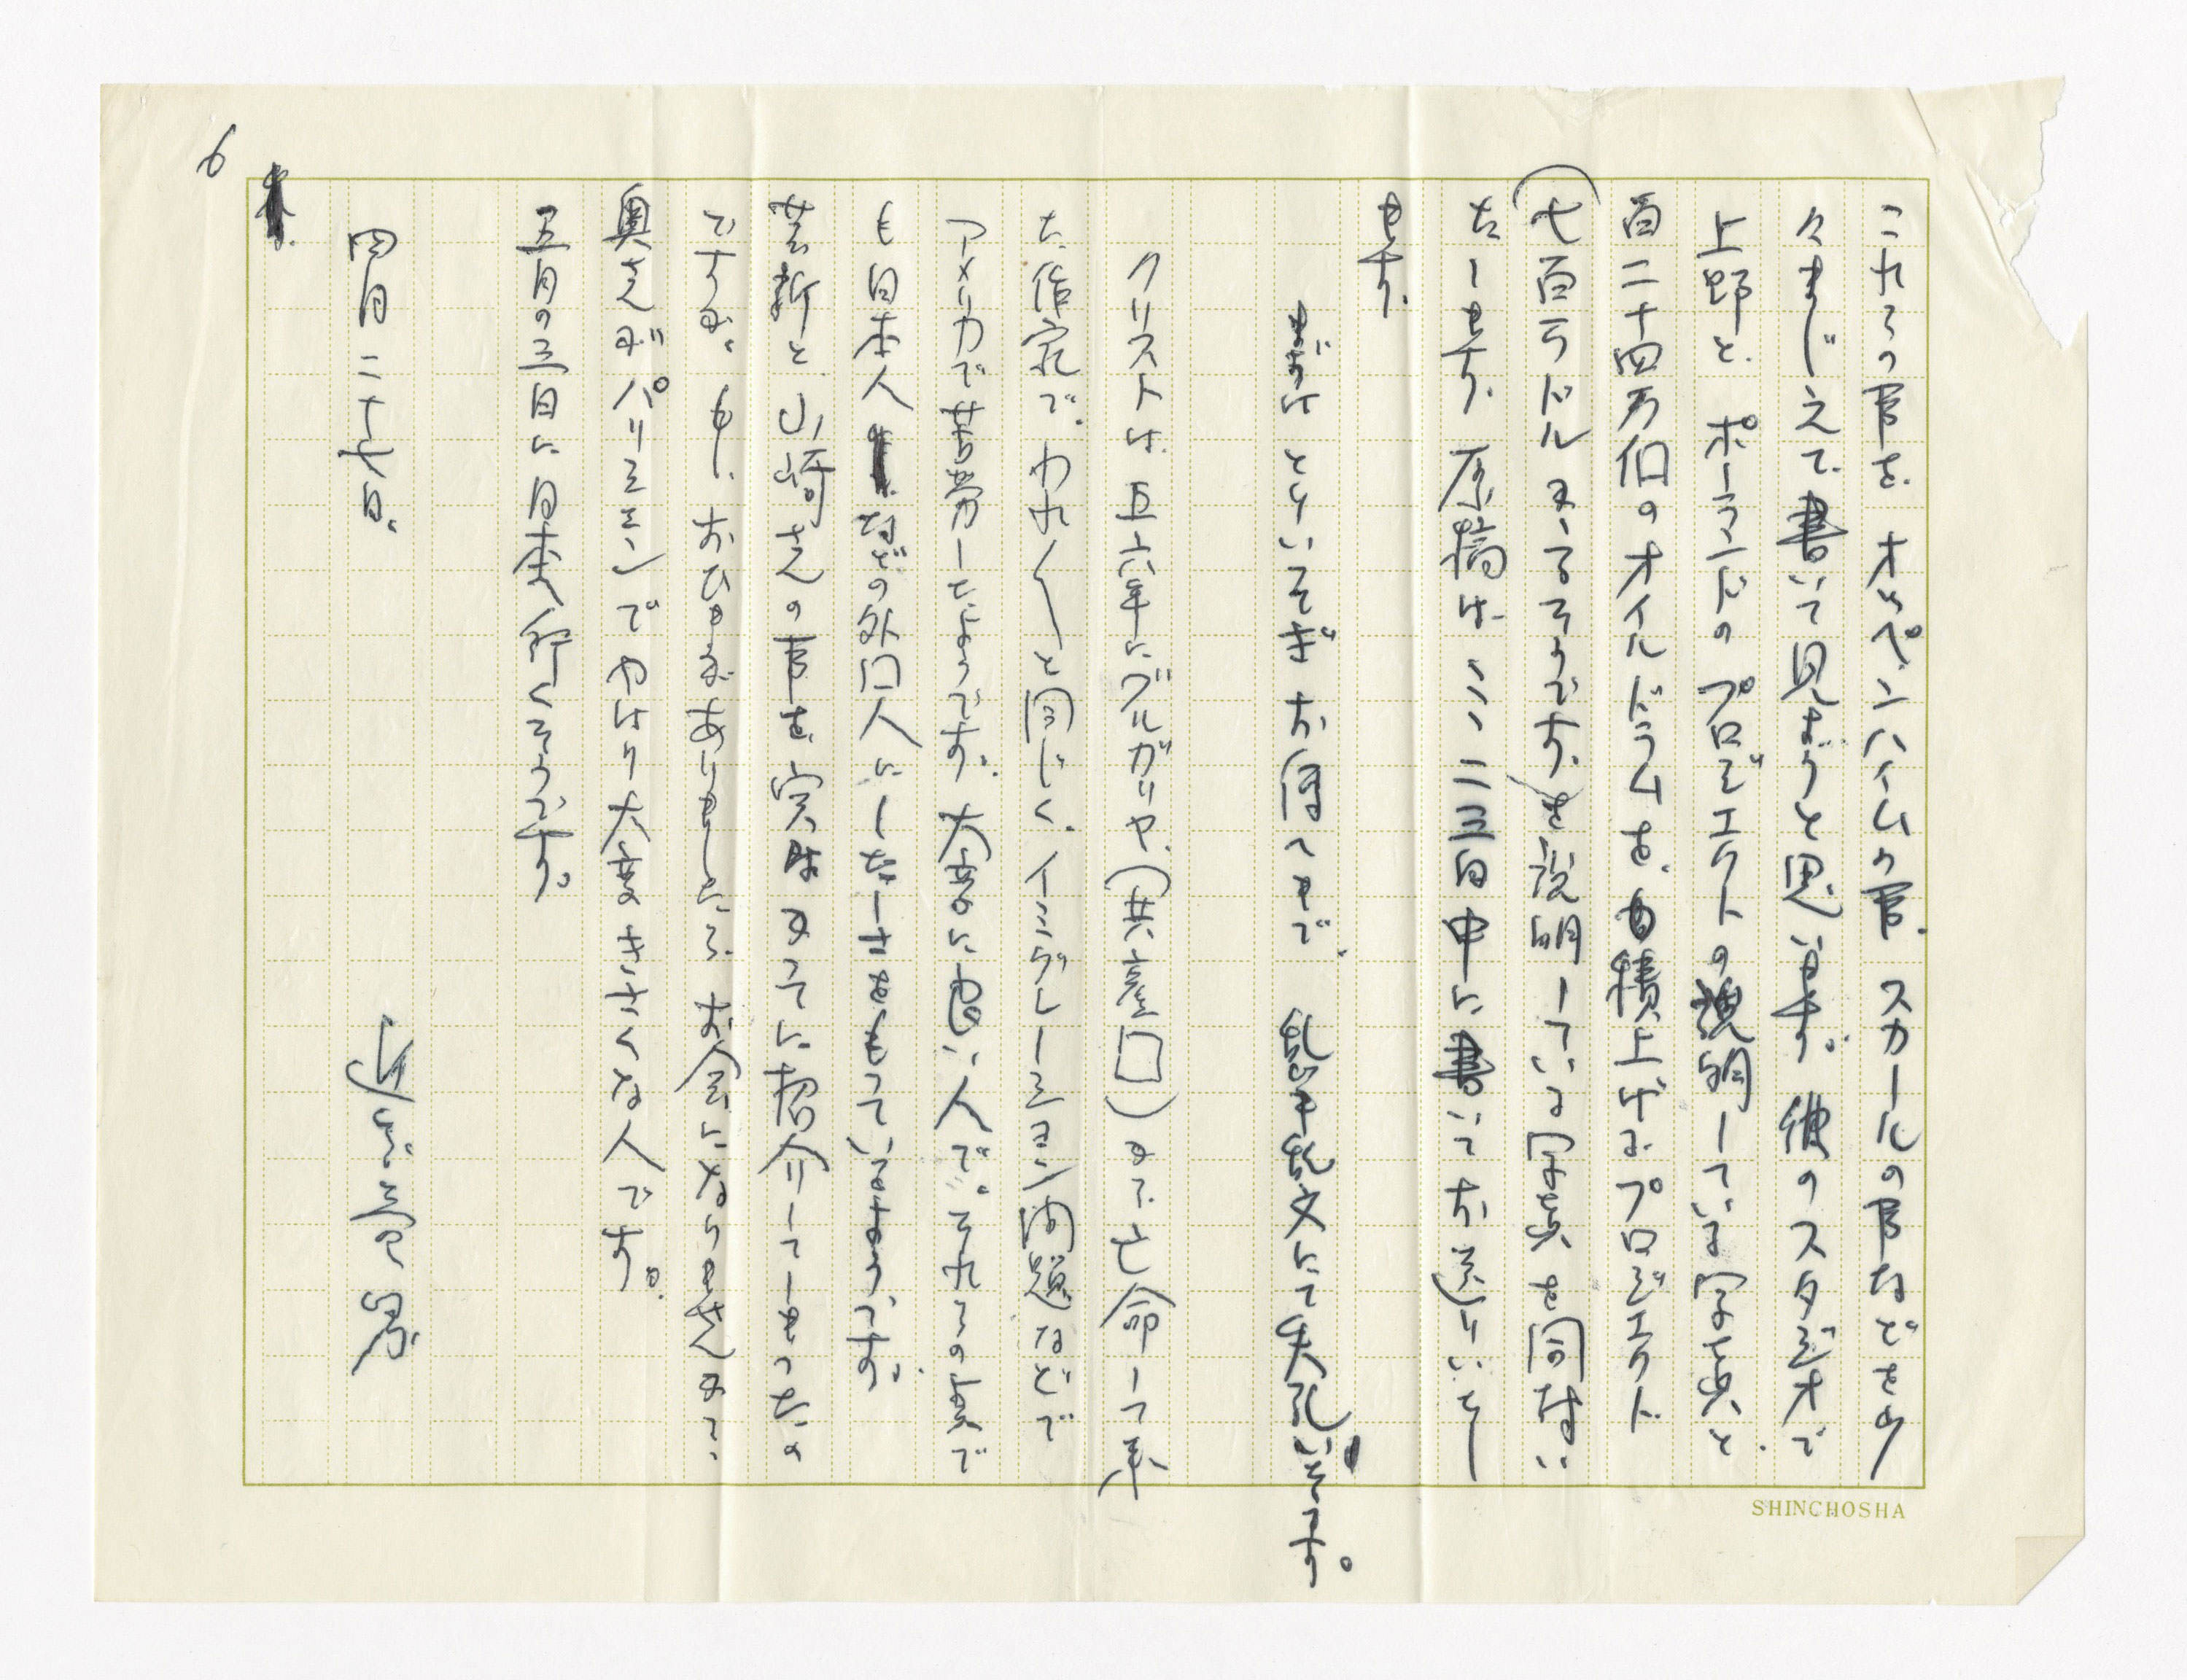 これらの事を、オッペンハイムの事、スカールの事などを少
々まじえて、書いて見ようと思います。彼のスタジオで
上野と、ポーランドのプロジェクトの説明している写真と、
百二十四万個のオイルドラムを、積上げるプロジェクト
(七百万ドルかゝるそうです)を説明している写真を同封い
たします。原稿は、こゝ二三日中に書いてお送りいたし
ます。
まずはとりいそぎお便りまで、乱筆乱文にて失礼いたします。
クリストは、五六年にブルガリヤ、(共産国)から亡命して来
た、作家で、われ〱と同じく、イミグレーション問題などで
アメリカで苦労したようです。大変に良い人で。それらの点で
も日本人などの外国人にしたしさをもっているようです。
芸新と、山崎さんの事を、実は、かってに紹介してしまったの
ですが、もし、おひまがありましたら、お会いになりませんか、
奥さんがパリミエンでやはり大変きさくな人です。
五月の三日に日本へ行くそうです。
四月二十七日。
6
SHINCHOSHA